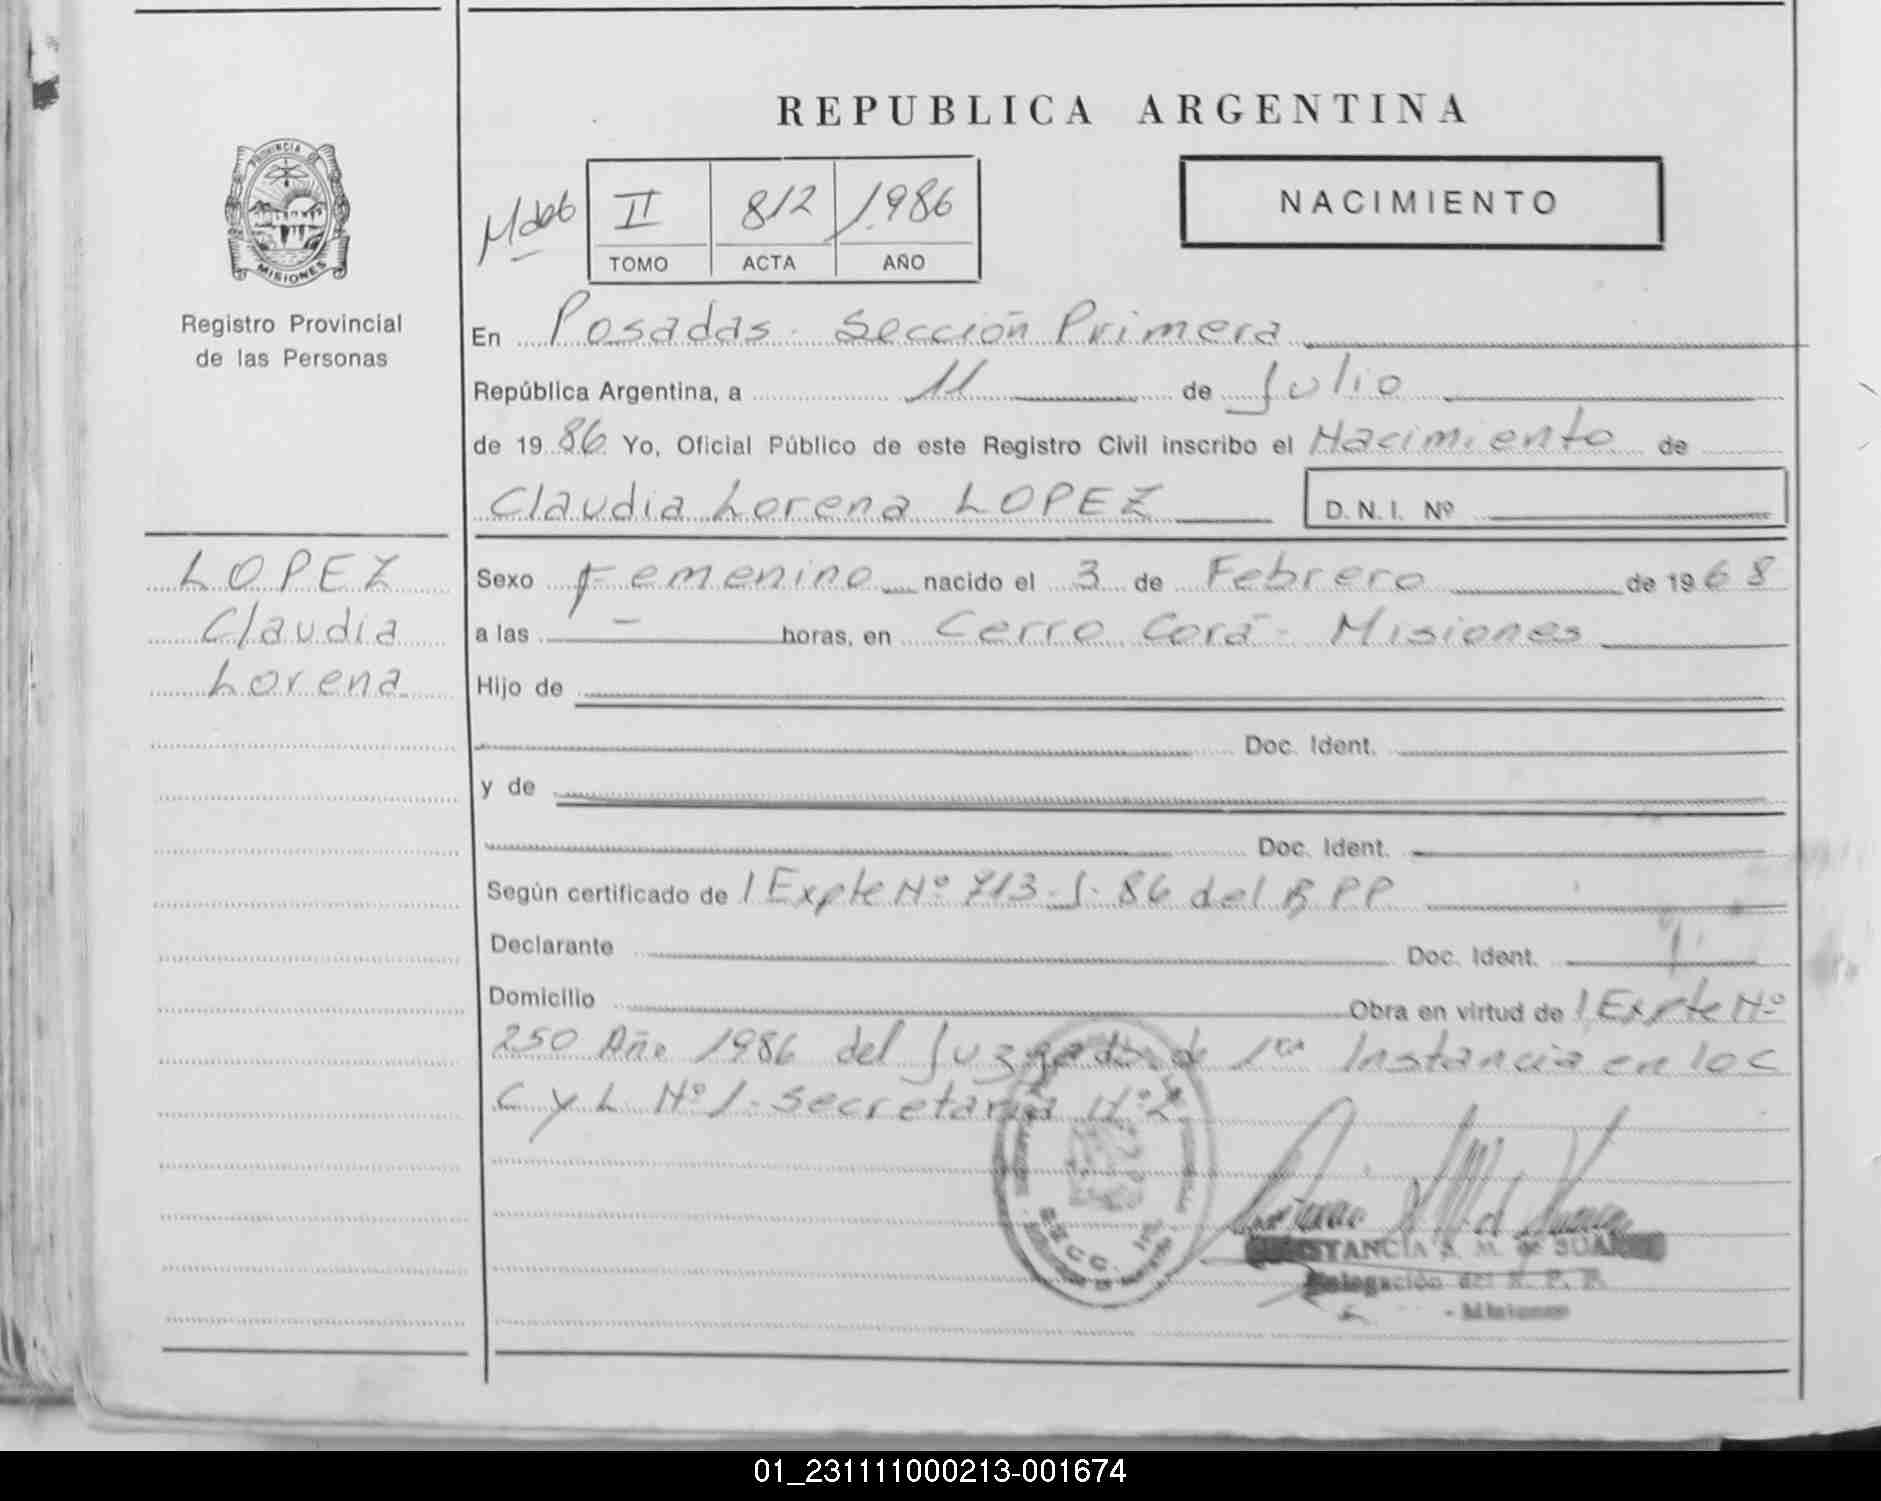 REPUBLICA ARGENTINA
PROVINCIA DE
MISIONES
Registro Provincial
de las Personas
II 812 1986
TOMO ACTA AÑO
NACIMIENTO
En Posadas - Sección Primera
República Argentina, a 11 de Julio
de 1986 Yo, Oficial Público de este Registro Civil inscribo el Nacimiento de
Claudia Lorena LOPEZ D.N.I. Nº
LOPEZ
Claudia
Lorena
Sexo Femenino nacido el 3 de Febrero de 1968
a las - horas, en Cerro Corá - Misiones
Hijo de
Doc. Ident.
y de
Doc. Ident.
Según certificado de / Expte Nº 713-J-86 del R P P
Declarante Doc. Ident.
Domicilio Obra en virtud de / Expte Nº
250 Año 1986 del Juzgado de 1ra Instancia en lo C
C y L Nº 1 - Secretaria Nº 2
SECC. 1ra
S. M. de
Delegación del R. P. P.
- Misiones
01_231111000213-001674